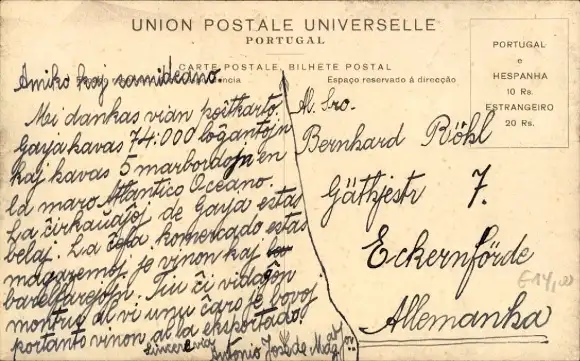 UNION POSTALE UNIVERSELLE
PORTUGAL
CARTE POSTALE BILHETE POSTAL
Espaço reservado á direcção
PORTUGAL
e
HESPANHA
10 Rs.
ESTRANGEIRO
20 Rs.
Amiko kaj samideano
Mi dankas vian poŝtkarto
Gaya havas 74:000 loĝantojn
kaj havas 5 marbordojn en
la maro Atlantico Oceano.
La ĉirkaŭaĵoj de Gaya estas
belaj. La ĉefa komercado estas
magazenoj je vinon kaj
barelfarejojn. Tiu ĉi vidaĵon
montras al vi unu ĉaro je bovoj
portanto vinon al la eksportado.
Sincere via
Antonio José de
Al Sro.
Bernhard Röhl
Gäthjestr 7.
Eckernförde
Allemanha